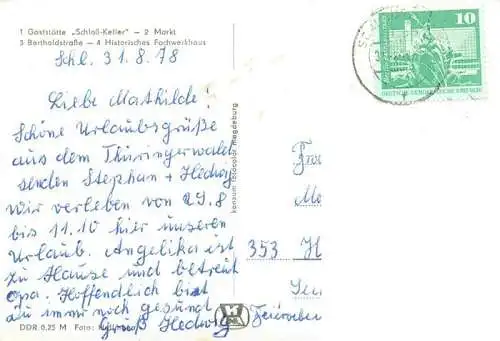 1 Gaststätte „Schloß-Keller" – 2 Markt
3 Bertholdstraße – 4 Historisches Fachwerkhaus
Schl. 31.8.78
Liebe Mathilde!
Schöne Urlaubsgrüße
aus dem Thüringerwald
senden Stephan + Hedwig
Wir verleben von 29.8
bis 11.10 hier unseren
Urlaub. Angelika ist
zu Hause und betreut
Opa. Hoffentlich bist
du immer noch gesund
Gruß Hedwig
DDR 0,25 M Foto:
konsum fotocolor magdeburg
10
353 H
Feierabe